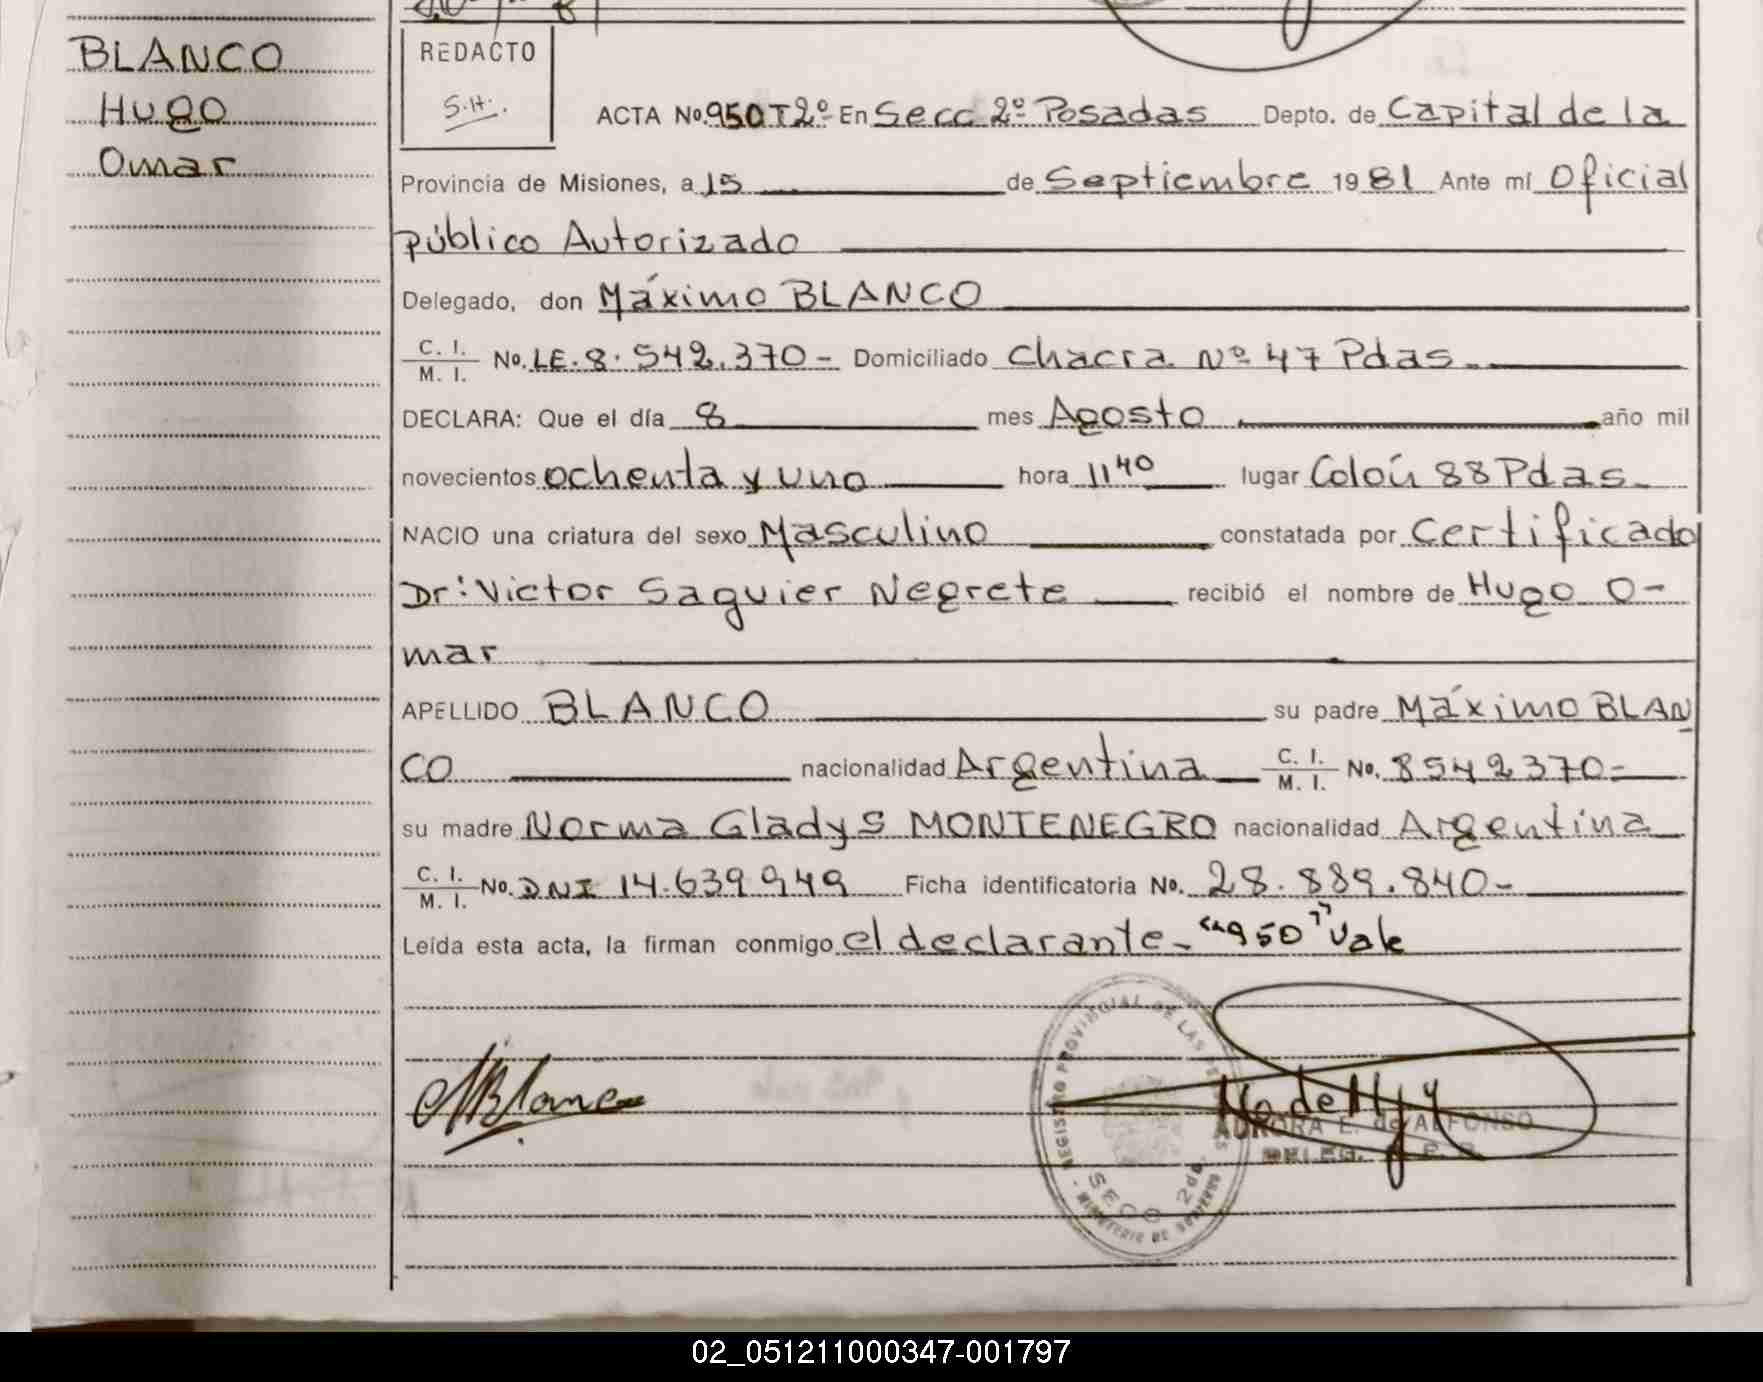 BLANCO
Hugo
Omar
REDACTO
S.H.
ACTA No. 950 T2º En Secc 2º Posadas Depto. de Capital de la
Provincia de Misiones, a 15 de Septiembre 1981 Ante mí Oficial
público Autorizado
Delegado, don Máximo BLANCO
C. I. / M. I. No. LE. 8.542.370- Domiciliado Chacra Nº 47 Pdas.
DECLARA: Que el día 8 mes Agosto año mil
novecientos ochenta y uno hora 11 40 lugar Colón 88 Pdas.
NACIO una criatura del sexo Masculino constatada por Certificado
Dr: Victor Saguier Negrete recibió el nombre de Hugo O-
mar
APELLIDO BLANCO su padre Máximo BLAN
CO nacionalidad Argentina C. I. / M. I. No. 8542370-
su madre Norma Gladys MONTENEGRO nacionalidad Argentina
C. I. / M. I. No. DNI 14.639.949 Ficha identificatoria No. 28.889.840-
Leída esta acta, la firman conmigo el declarante- "950" Vale
MBlanco
REGISTRO PROVINCIAL DE LAS PERSONAS
SECC 2da.
MINISTERIO DE GOBIERNO
AURORA E. de ALFONSO
DELEG.
02_051211000347-001797